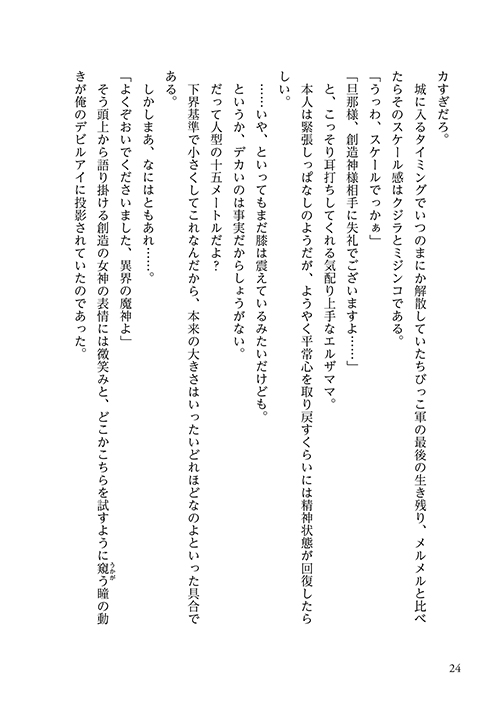 カすぎだろ。
　城に入るタイミングでいつのまにか解散していたちびっこ軍の最後の生き残り、メルメルと比べ
たらそのスケール感はクジラとミジンコである。
「うっわ、スケールでっかぁ」
「旦那様、創造神様相手に失礼でございますよ……」
　と、こっそり耳打ちしてくれる気配り上手なエルザママ。
　本人は緊張しっぱなしのようだが、ようやく平常心を取り戻すくらいには精神状態が回復したら
しい。
　……いや、といってもまだ膝は震えているみたいだけども。
　というか、デカいのは事実だからしょうがない。
　だって人型の十五メートルだよ？
　下界基準で小さくしてこれなんだから、本来の大きさはいったいどれほどなのよといった具合で
ある。
　しかしまあ、なにはともあれ……。
「よくぞおいでくださいました、異界の魔神よ」
　そう頭上から語り掛ける創造の女神の表情には微笑みと、どこかこちらを試すように窺う瞳の動
うかが
きが俺のデビルアイに投影されていたのであった。
24